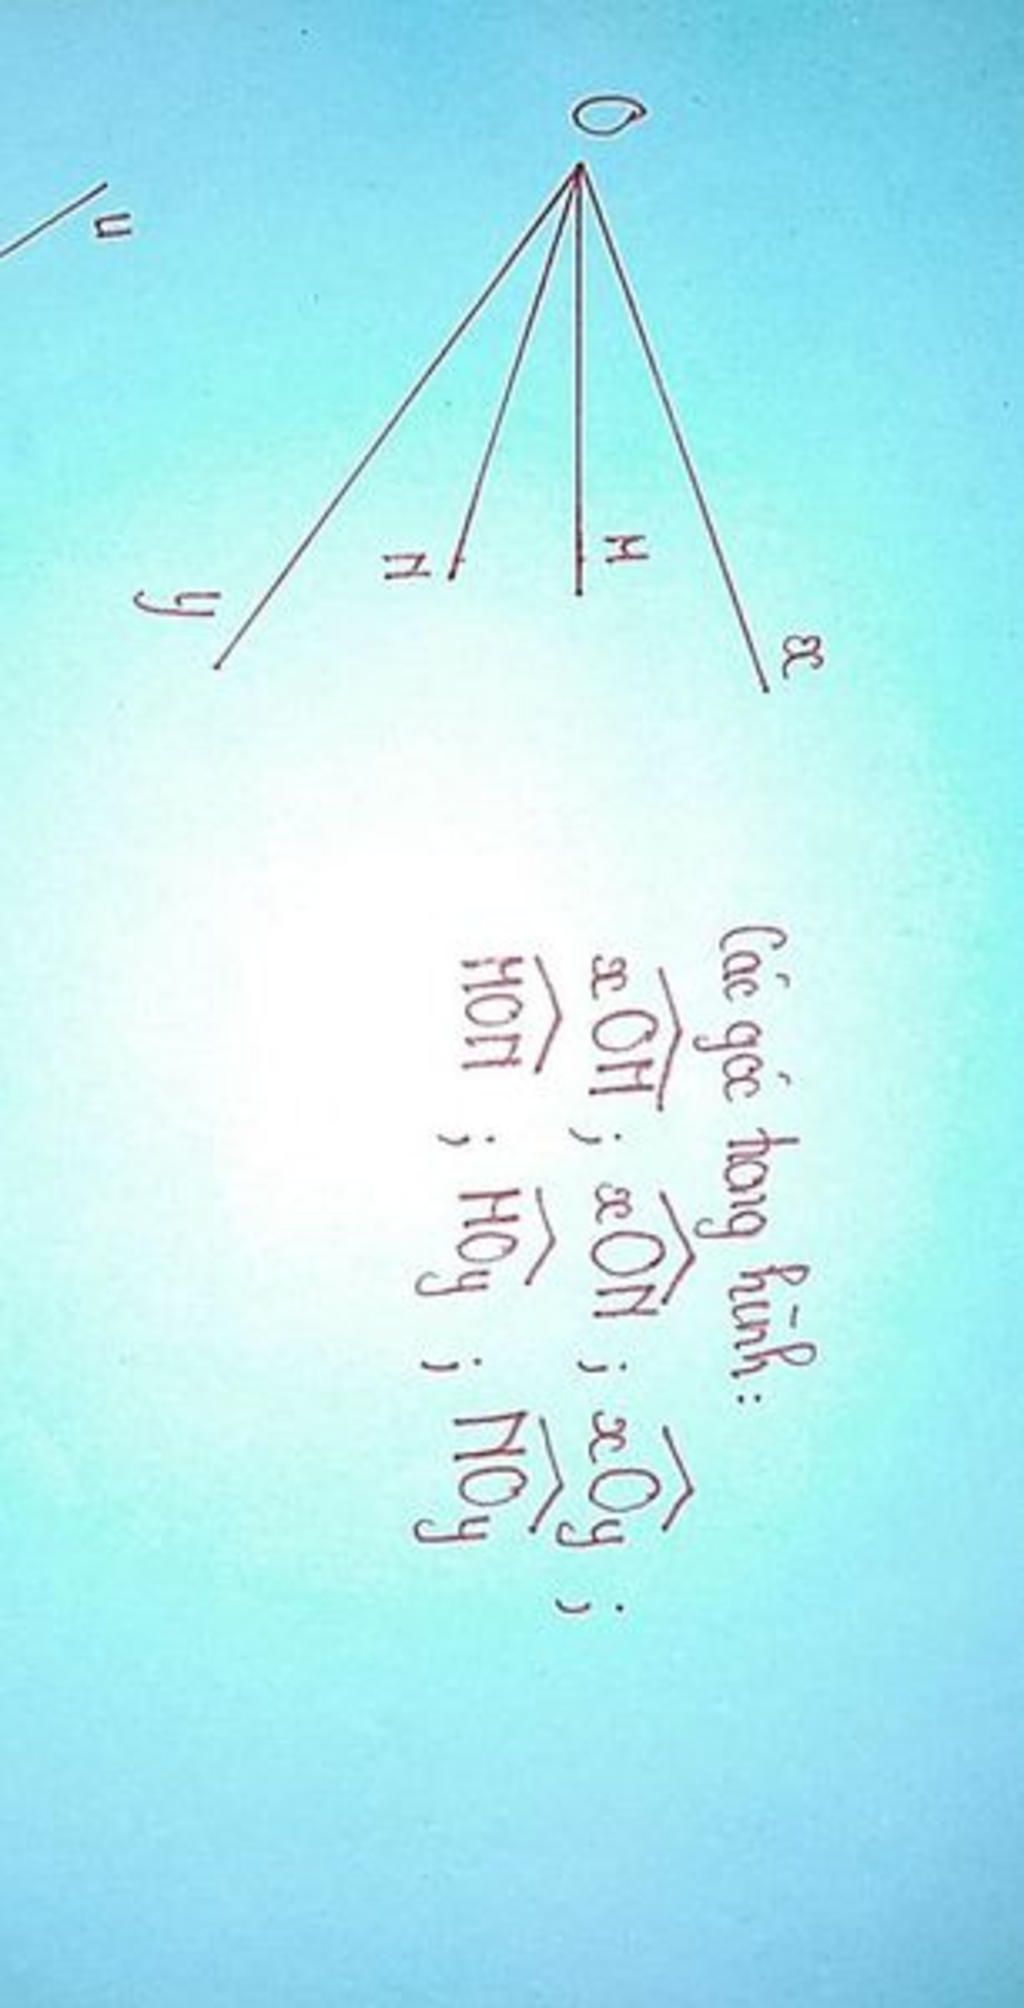 O
x
M
N
y
u
Các góc trong hình:
xOM ; xON ; xOy ;
MON ; MOy ; NOy